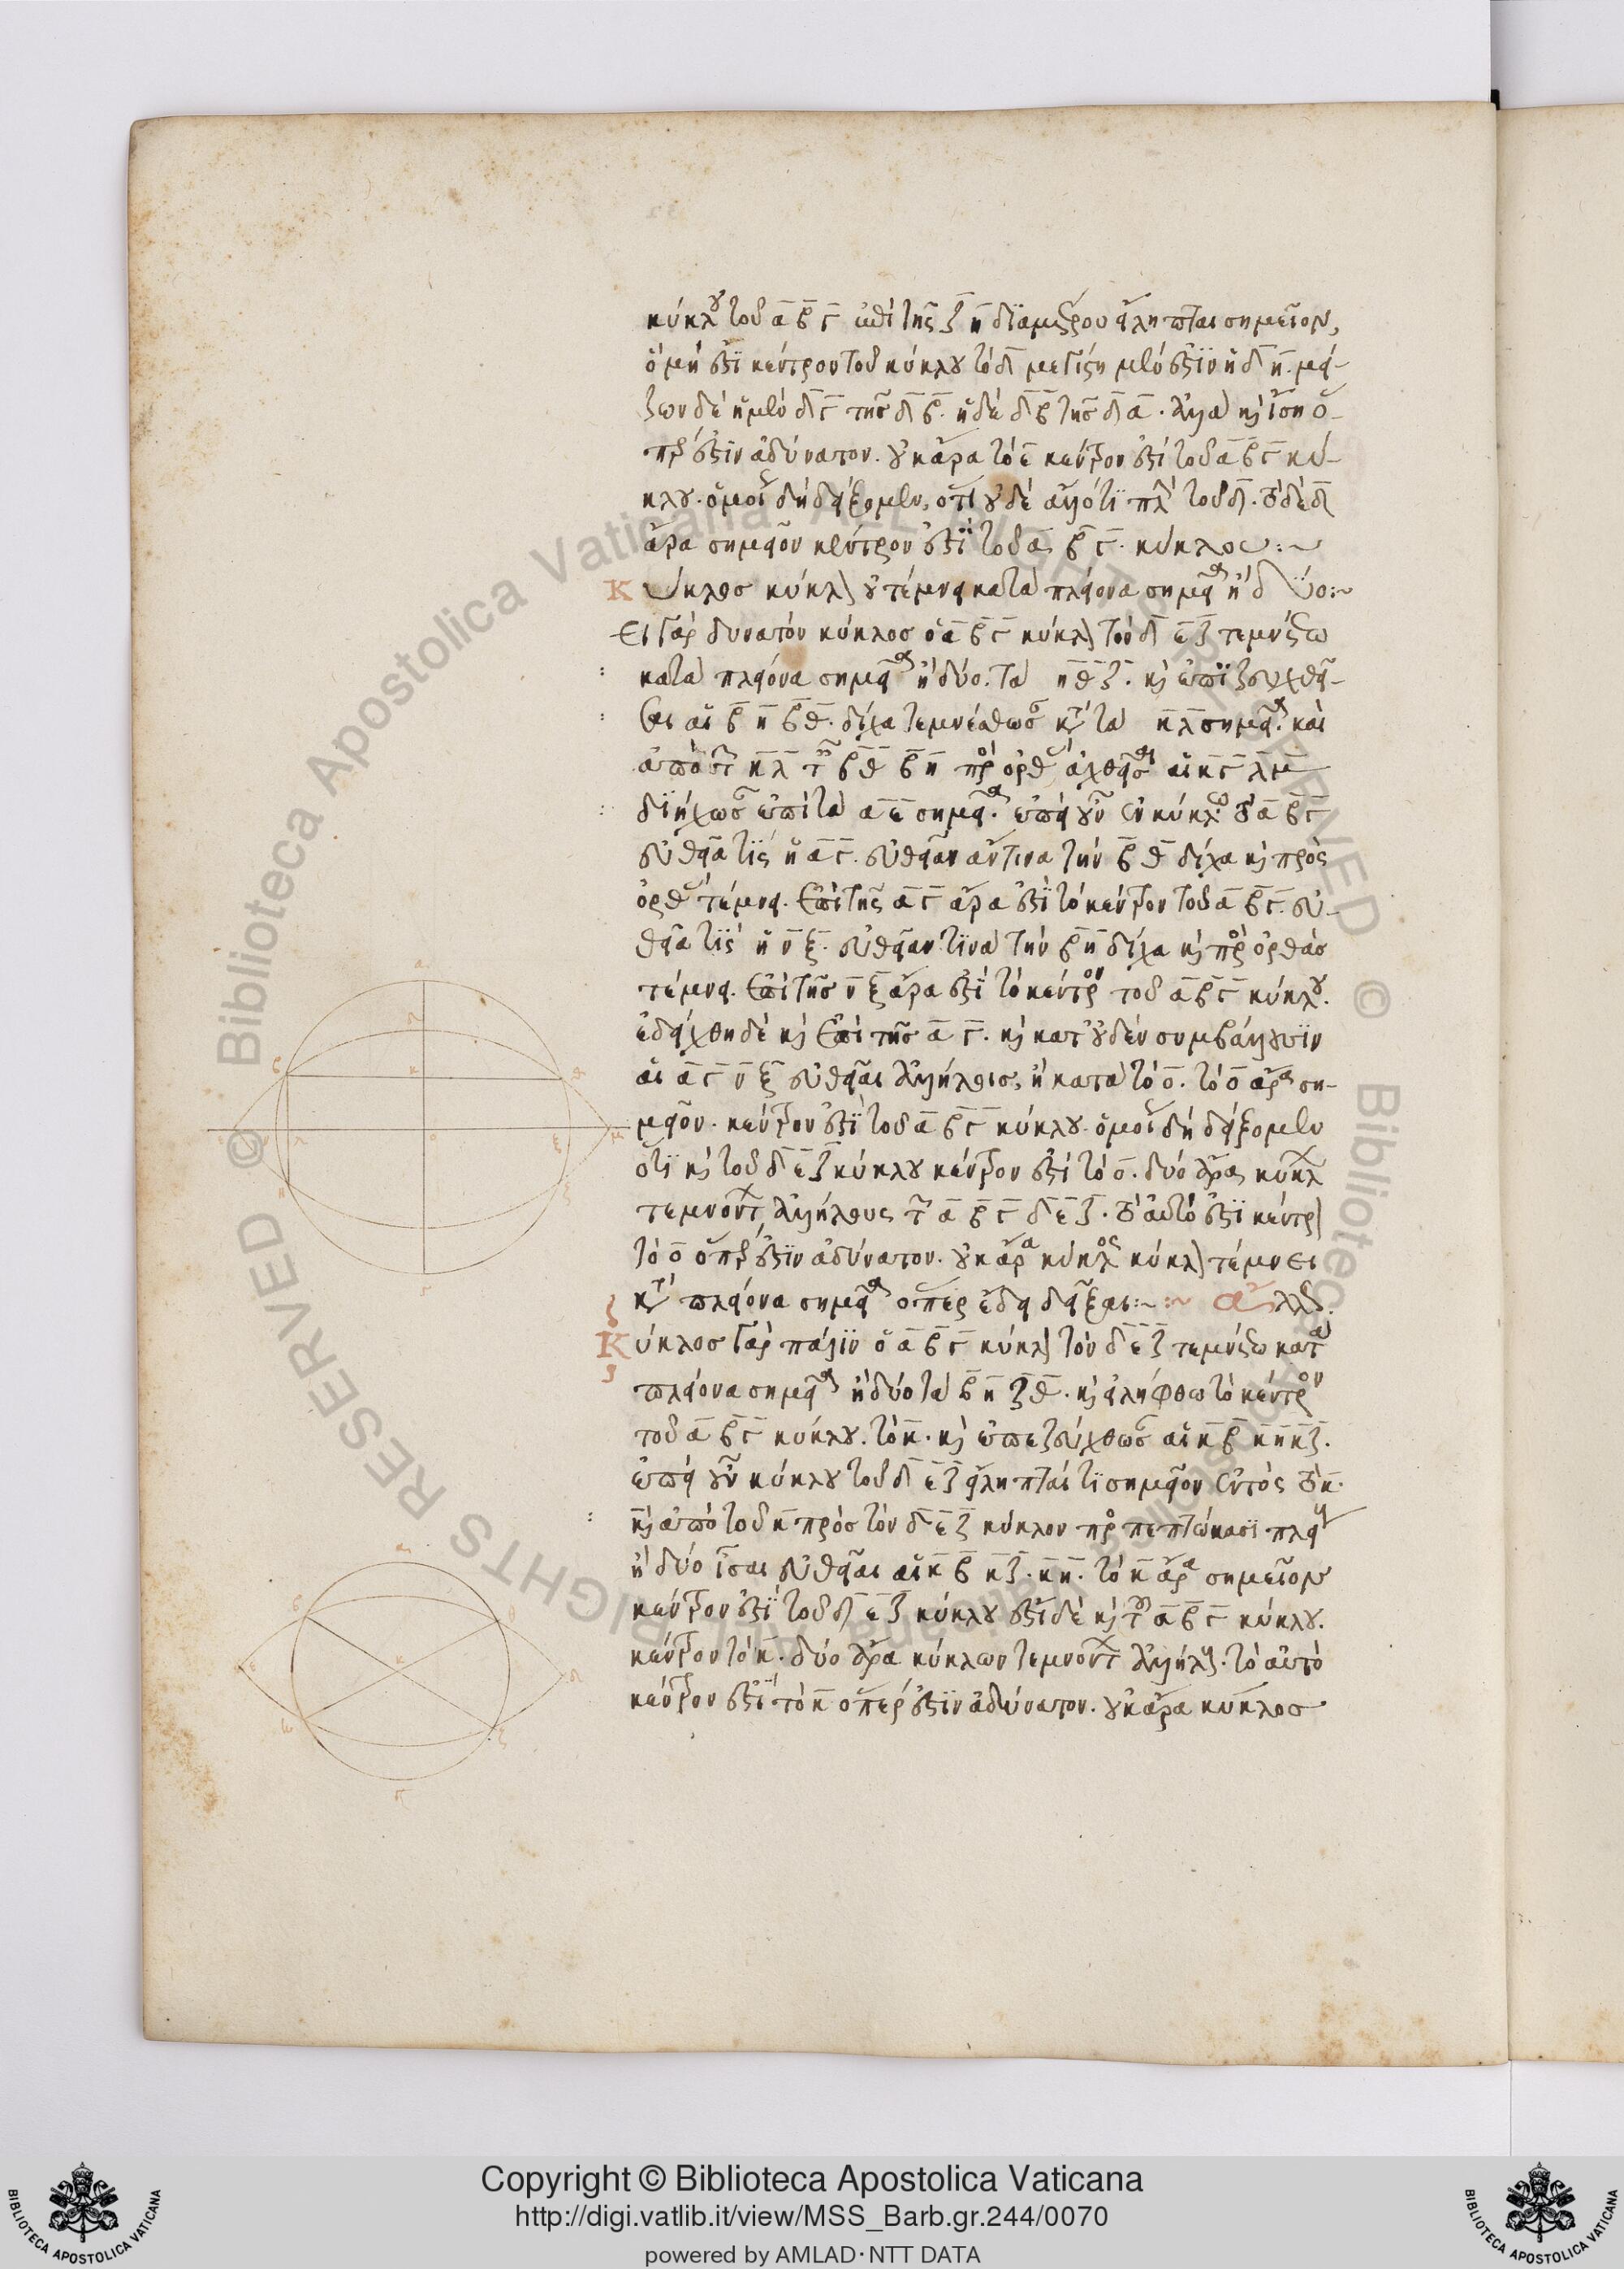 κύκλου τοῦ α β γ ἐπὶ τῆς ζ η διαμέτρου εἴληπται σημεῖον,
ὃ μή ἐστι κέντρον τοῦ κύκλου τὸ δ μεγίστη μὲν ἐστὶν ἡ δ η. μεί-
ζων δὲ ἡ μὲν δ γ τῆς δ β. ἡ δὲ δ β τῆς δ α. ἀλλὰ καὶ ἴση ὅ-
περ ἐστὶν ἀδύνατον. οὐκ ἄρα τὸ ε κέντρον ἐστὶ τοῦ α β γ κύ-
κλου. ὁμοίως δὴ δείξομεν, ὅτι οὐδὲ ἄλλό τι πλὴν τοῦ δ. τὸ δὲ δ
ἄρα σημεῖον κέντρον ἐστὶ τοῦ α β γ κύκλου:~
Κύκλος κύκλον οὐ τέμνει κατὰ πλείονα σημεῖα ἢ δύο:~
Εἰ γὰρ δυνατὸν κύκλος ὁ α β γ κύκλον τὸν δ ε ζ τεμνέτω
κατὰ πλείονα σημεῖα ἢ δύο. τὰ η θ ζ. καὶ ἐπιζευχθεῖ-
σαι αἱ β η β θ. δίχα τεμνέσθωσαν κατὰ τὰ κ λ σημεῖα. καὶ
ἀπὸ τῶν κ λ ταῖς β θ β η πρὸς ὀρθὰς ἀχθεῖσαι αἱ κ γ λ μ
διήχθωσαν ἐπὶ τὰ α ε σημεῖα. ἐπεὶ οὖν ἐν κύκλῳ τῷ α β γ
εὐθεῖά τις ἡ α γ. εὐθεῖαν αν τινα τὴν β θ δίχα καὶ πρὸς
ὀρθὰς τέμνει. ἐπὶ τῆς α γ ἄρα ἐστὶ τὸ κέντρον τοῦ α β γ. εὐ-
θεῖά τις ἡ ν ξ. εὐθεῖαν τινα τὴν β η δίχα καὶ πρὸς ὀρθὰς
τέμνει. ἐπὶ τῆς ν ξ ἄρα ἐστὶ τὸ κέντρον τοῦ α β γ κύκλου.
ἐδείχθη δὲ καὶ ἐπὶ τῆς α γ. καὶ κατ' οὐδὲν συμβάλλουσιν
αἱ α γ ν ξ εὐθεῖαι ἀλλήλαις, ἢ κατὰ τὸ ο. τὸ ο ἄρα ση-
μεῖον. κέντρον ἐστὶ τοῦ α β γ κύκλου. ὁμοίως δὴ δείξομεν
ὅτι καὶ τοῦ δ ε ζ κύκλου κέντρον ἐστὶ τὸ ο. δύο ἄρα κύκλων
τεμνόντων ἀλλήλους τῶν α β γ δ ε ζ. τὸ αὐτό ἐστι κέντρον
τὸ ο ὅπερ ἐστὶν ἀδύνατον. οὐκ ἄρα κύκλος κύκλον τέμνει
κατὰ πλείονα σημεῖα ὅπερ ἔδει δεῖξαι:~:~ ἄλλως.
Κύκλος γὰρ πάλιν ὁ α β γ κύκλον τὸν δ ε ζ τεμνέτω κατὰ
πλείονα σημεῖα ἢ δύο τὰ β η ζ θ. καὶ εἰλήφθω τὸ κέντρον
τοῦ α β γ κύκλου. τὸ κ. καὶ ἐπεζεύχθωσαν αἱ κ β κ η κ ζ.
ἐπεὶ οὖν κύκλου τοῦ δ ε ζ εἴληπταί τι σημεῖον ἐντὸς τὸ κ.
καὶ ἀπὸ τοῦ κ πρὸς τὸν δ ε ζ κύκλον προσπεπτώκασι πλείους
ἢ δύο ἴσαι εὐθεῖαι αἱ κ β κ ζ. κ η. τὸ κ ἄρα σημεῖον
κέντρον ἐστὶ τοῦ δ ε ζ κύκλου ἐστὶ δὲ καὶ τοῦ α β γ κύκλου.
κέντρον τὸ κ. δύο ἄρα κύκλων τεμνόντων ἀλλήλους. τὸ αὐτὸ
κέντρον ἐστὶ τὸ κ ὅπερ ἐστὶν ἀδύνατον. οὐκ ἄρα κύκλος
Copyright © Biblioteca Apostolica Vaticana
http://digi.vatlib.it/view/MSS_Barb.gr.244/0070
powered by AMLAD·NTT DATA
BIBLIOTECA APOSTOLICA VATICANA
BIBLIOTECA APOSTOLICA VATICANA